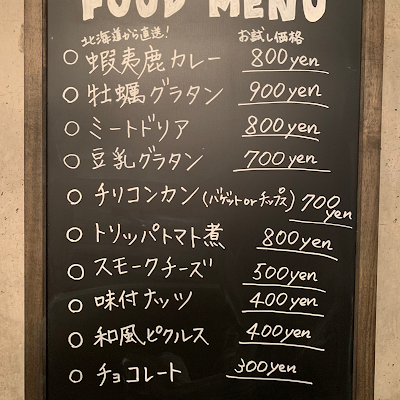 FOOD MENU
北海道から直送! お試し価格
○ 蝦夷鹿カレー 800yen
○ 牡蠣グラタン 900yen
○ ミートドリア 800yen
○ 豆乳グラタン 700yen
○ チリコンカン (バゲットorチップス) 700yen
○ トリッパトマト煮 800yen
○ スモークチーズ 500yen
○ 味付ナッツ 400yen
○ 和風ピクルス 400yen
○ チョコレート 300yen